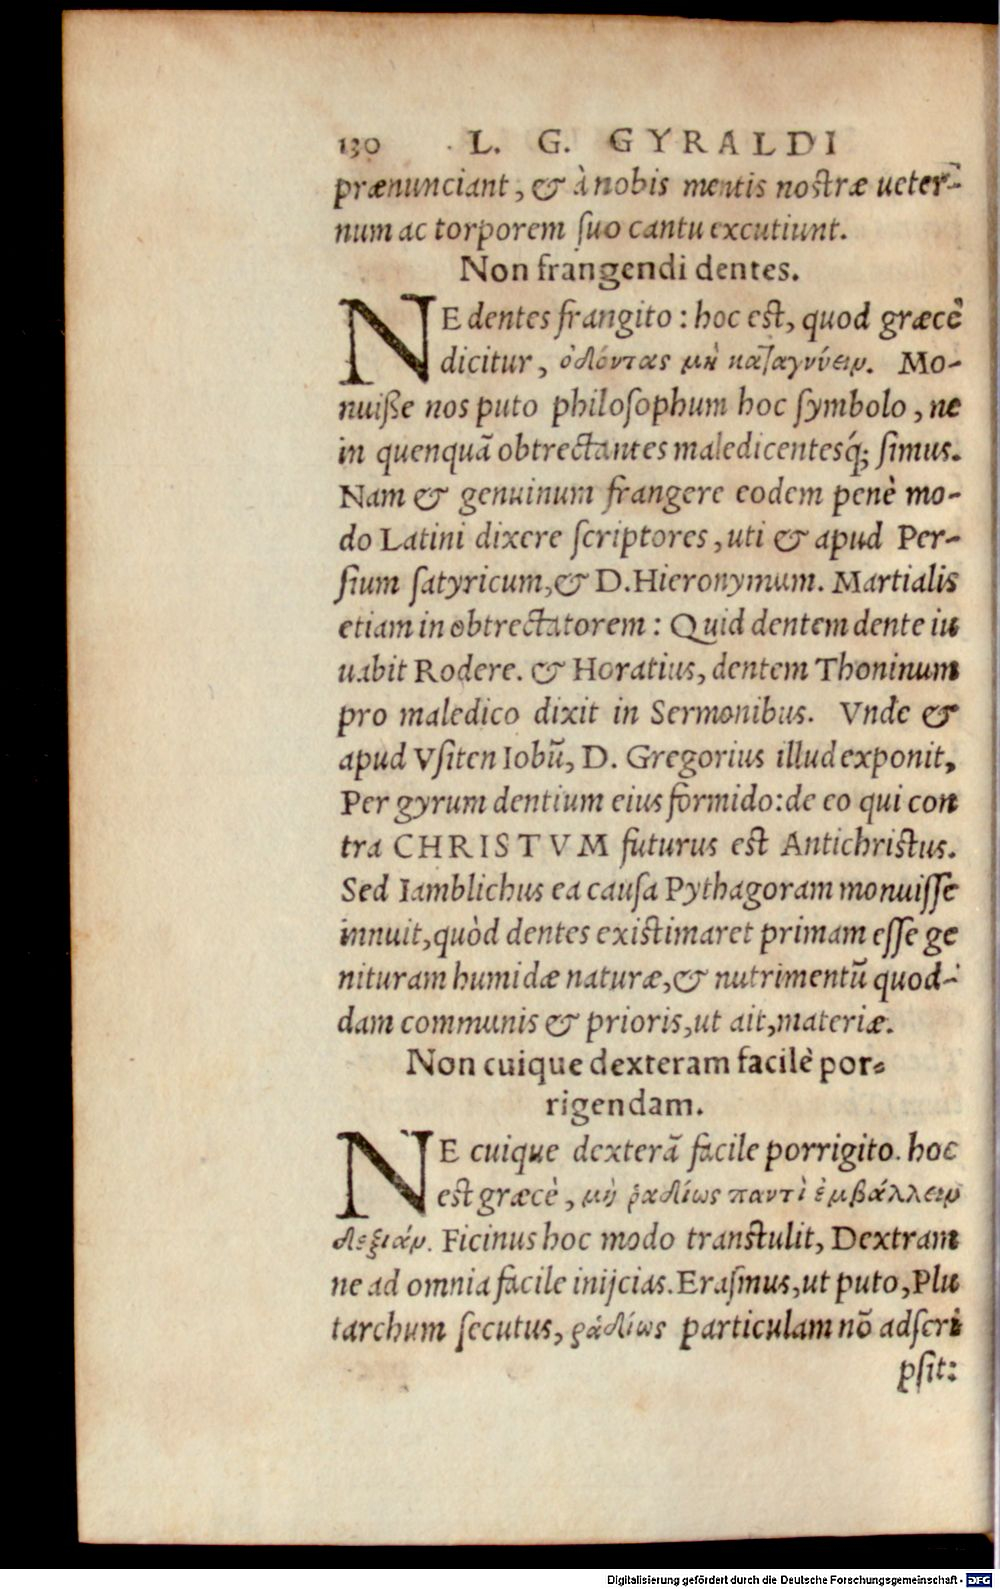 130 L. G. GYRALDI
prænunciant, & à nobis mentis nostræ ueter-
num ac torporem suo cantu excutiunt.
Non frangendi dentes.
NE dentes frangito: hoc est, quod græcè
dicitur, ὀδόντας μὴ καταγνύειν. Mo-
nuisse nos puto philosophum hoc symbolo, ne
in quenquã obtrectantes maledicentesq́; simus.
Nam & genuinum frangere eodem penè mo-
do Latini dixere scriptores, uti & apud Per-
sium satyricum, & D. Hieronymum. Martialis
etiam in obtrectatorem: Quid dentem dente iu
uabit Rodere. & Horatius, dentem Thoninum
pro maledico dixit in Sermonibus. Vnde &
apud Vsiten Iobũ, D. Gregorius illud exponit,
Per gyrum dentium eius formido: de eo qui con
tra CHRISTVM futurus est Antichristus.
Sed Iamblichus ea causa Pythagoram monuisse
innuit, quòd dentes existimaret primam esse ge
nituram humidæ naturæ, & nutrimentũ quod-
dam communis & prioris, ut ait, materiæ.
Non cuique dexteram facilè por-
rigendam.
NE cuique dexterã facile porrigito. hoc
est græcè, μὴ ῥαδίως παντὶ ἐμβάλλειν
δεξιάν. Ficinus hoc modo transtulit, Dextram
ne ad omnia facile inijcias. Erasmus, ut puto, Plu
tarchum secutus, ῥαδίως particulam nõ adscri
psit:
Digitalisierung gefördert durch die Deutsche Forschungsgemeinschaft - DFG